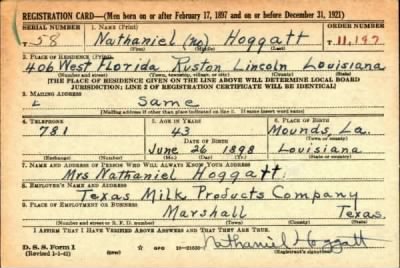 REGISTRATION CARD—(Men born on or after February 17, 1897 and on or before December 31, 1921)
SERIAL NUMBER 1. NAME (Print) ORDER NUMBER
T 58 Nathaniel (no) Hoggatt T 11,197
(First) (Middle) (Last)
2. PLACE OF RESIDENCE (Print)
406 West Florida Ruston Lincoln Louisiana
(Number and street) (Town, township, village, or city) (County) (State)
[THE PLACE OF RESIDENCE GIVEN ON THE LINE ABOVE WILL DETERMINE LOCAL BOARD
JURISDICTION; LINE 2 OF REGISTRATION CERTIFICATE WILL BE IDENTICAL]
3. MAILING ADDRESS
Same
[Mailing address if other than place indicated on line 2. If same insert word same]
4. TELEPHONE 5. AGE IN YEARS 6. PLACE OF BIRTH
781 43 Mounds, La.
DATE OF BIRTH (Town or county)
June 26 1898 Louisiana
(Exchange) (Number) (Mo.) (Day) (Yr.) (State or country)
7. NAME AND ADDRESS OF PERSON WHO WILL ALWAYS KNOW YOUR ADDRESS
Mrs Nathaniel Hoggatt
8. EMPLOYER'S NAME AND ADDRESS
Texas Milk Products Company
9. PLACE OF EMPLOYMENT OR BUSINESS
Marshall Texas
(Number and street or R. F. D. number) (Town) (County) (State)
I AFFIRM THAT I HAVE VERIFIED ABOVE ANSWERS AND THAT THEY ARE TRUE.
D. S. S. Form 1
(Revised 1-1-42) GPO Nathaniel Hoggatt